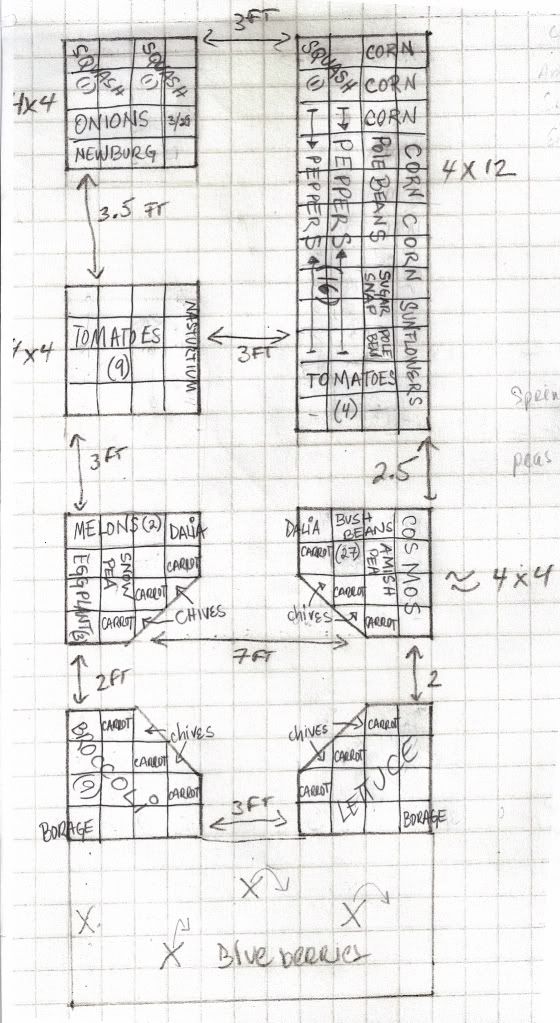 3FT
SQUASH (1)
SQUASH (1)
4x4
ONIONS 3/29
NEWBURG
SQUASH (1)
CORN
CORN
CORN
PEPPERS
PEPPERS
(16)
POLE BEANS
CORN CORN CORN SUNFLOWERS
SUGAR SNAP
POLE BEN
TOMATOES
(4)
4 x 12
3.5 FT
TOMATOES
(9)
NASTURTIUM
4x4
3FT
3FT
2.5
peas
MELONS (2)
DALiA
EGGPLANT
SNOW PEA
CARROT
CARROT
CARROT
CHIVES
DALiA
BUSH BEANS
(27)
COSMOS
CARROT
AMISH PEA
CARROT
chives
CARROT
≈ 4x4
7FT
2FT
2
BROCCOLI
(9)
CARROT
CARROT
CARROT
chives
BORAGE
CHIVES
CARROT
CARROT
CARROT
LETTUCE
BORAGE
3FT
X
X
X
X
Blueberries